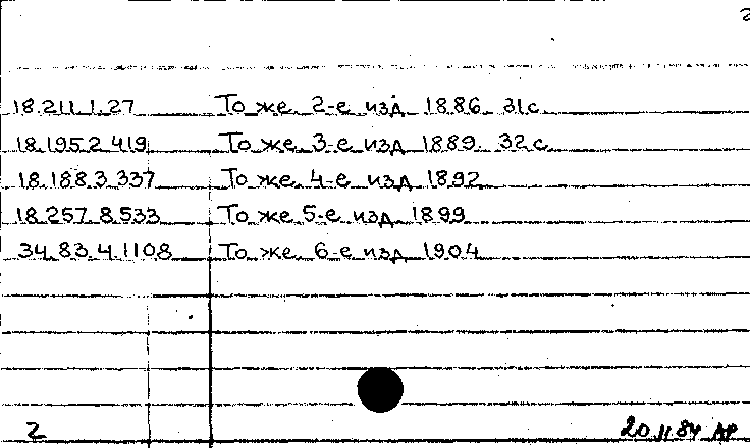 18.211.1.27 То же. 2-е изд. 1886. 31с.
18.195.2.419 То же. 3-е изд. 1889. 32с.
18.188.3.337 То же. 4-е изд. 1892
18.257.8.533 То же 5-е изд. 1899
34.83.4.1108 То же. 6-е изд. 1904
2 20.11.84 АР